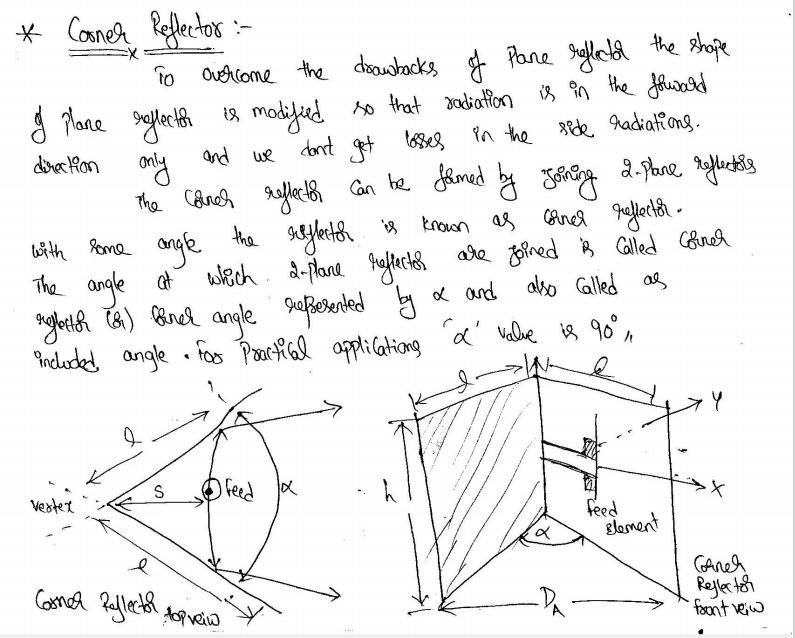 * Corner Reflector :-
To overcome the drawbacks of Plane reflector the shape
of plane reflector is modified so that radiation is in the forward
direction only and we dont get losses in the side radiations.
The Corner reflector Can be formed by joining 2-plane reflectors
with some angle the reflector is known as corner reflector.
The angle at which 2-plane reflector are joined is Called Corner
reflector (or) Corner angle represented by α and also called as
included angle. For Practical applications 'α' value is 90°,,
l
vertex
S
feed
α
l
Corner Reflector
top veiw
l
l
Y
h
X
feed
element
α
D_A
Corner
Reflector
front veiw